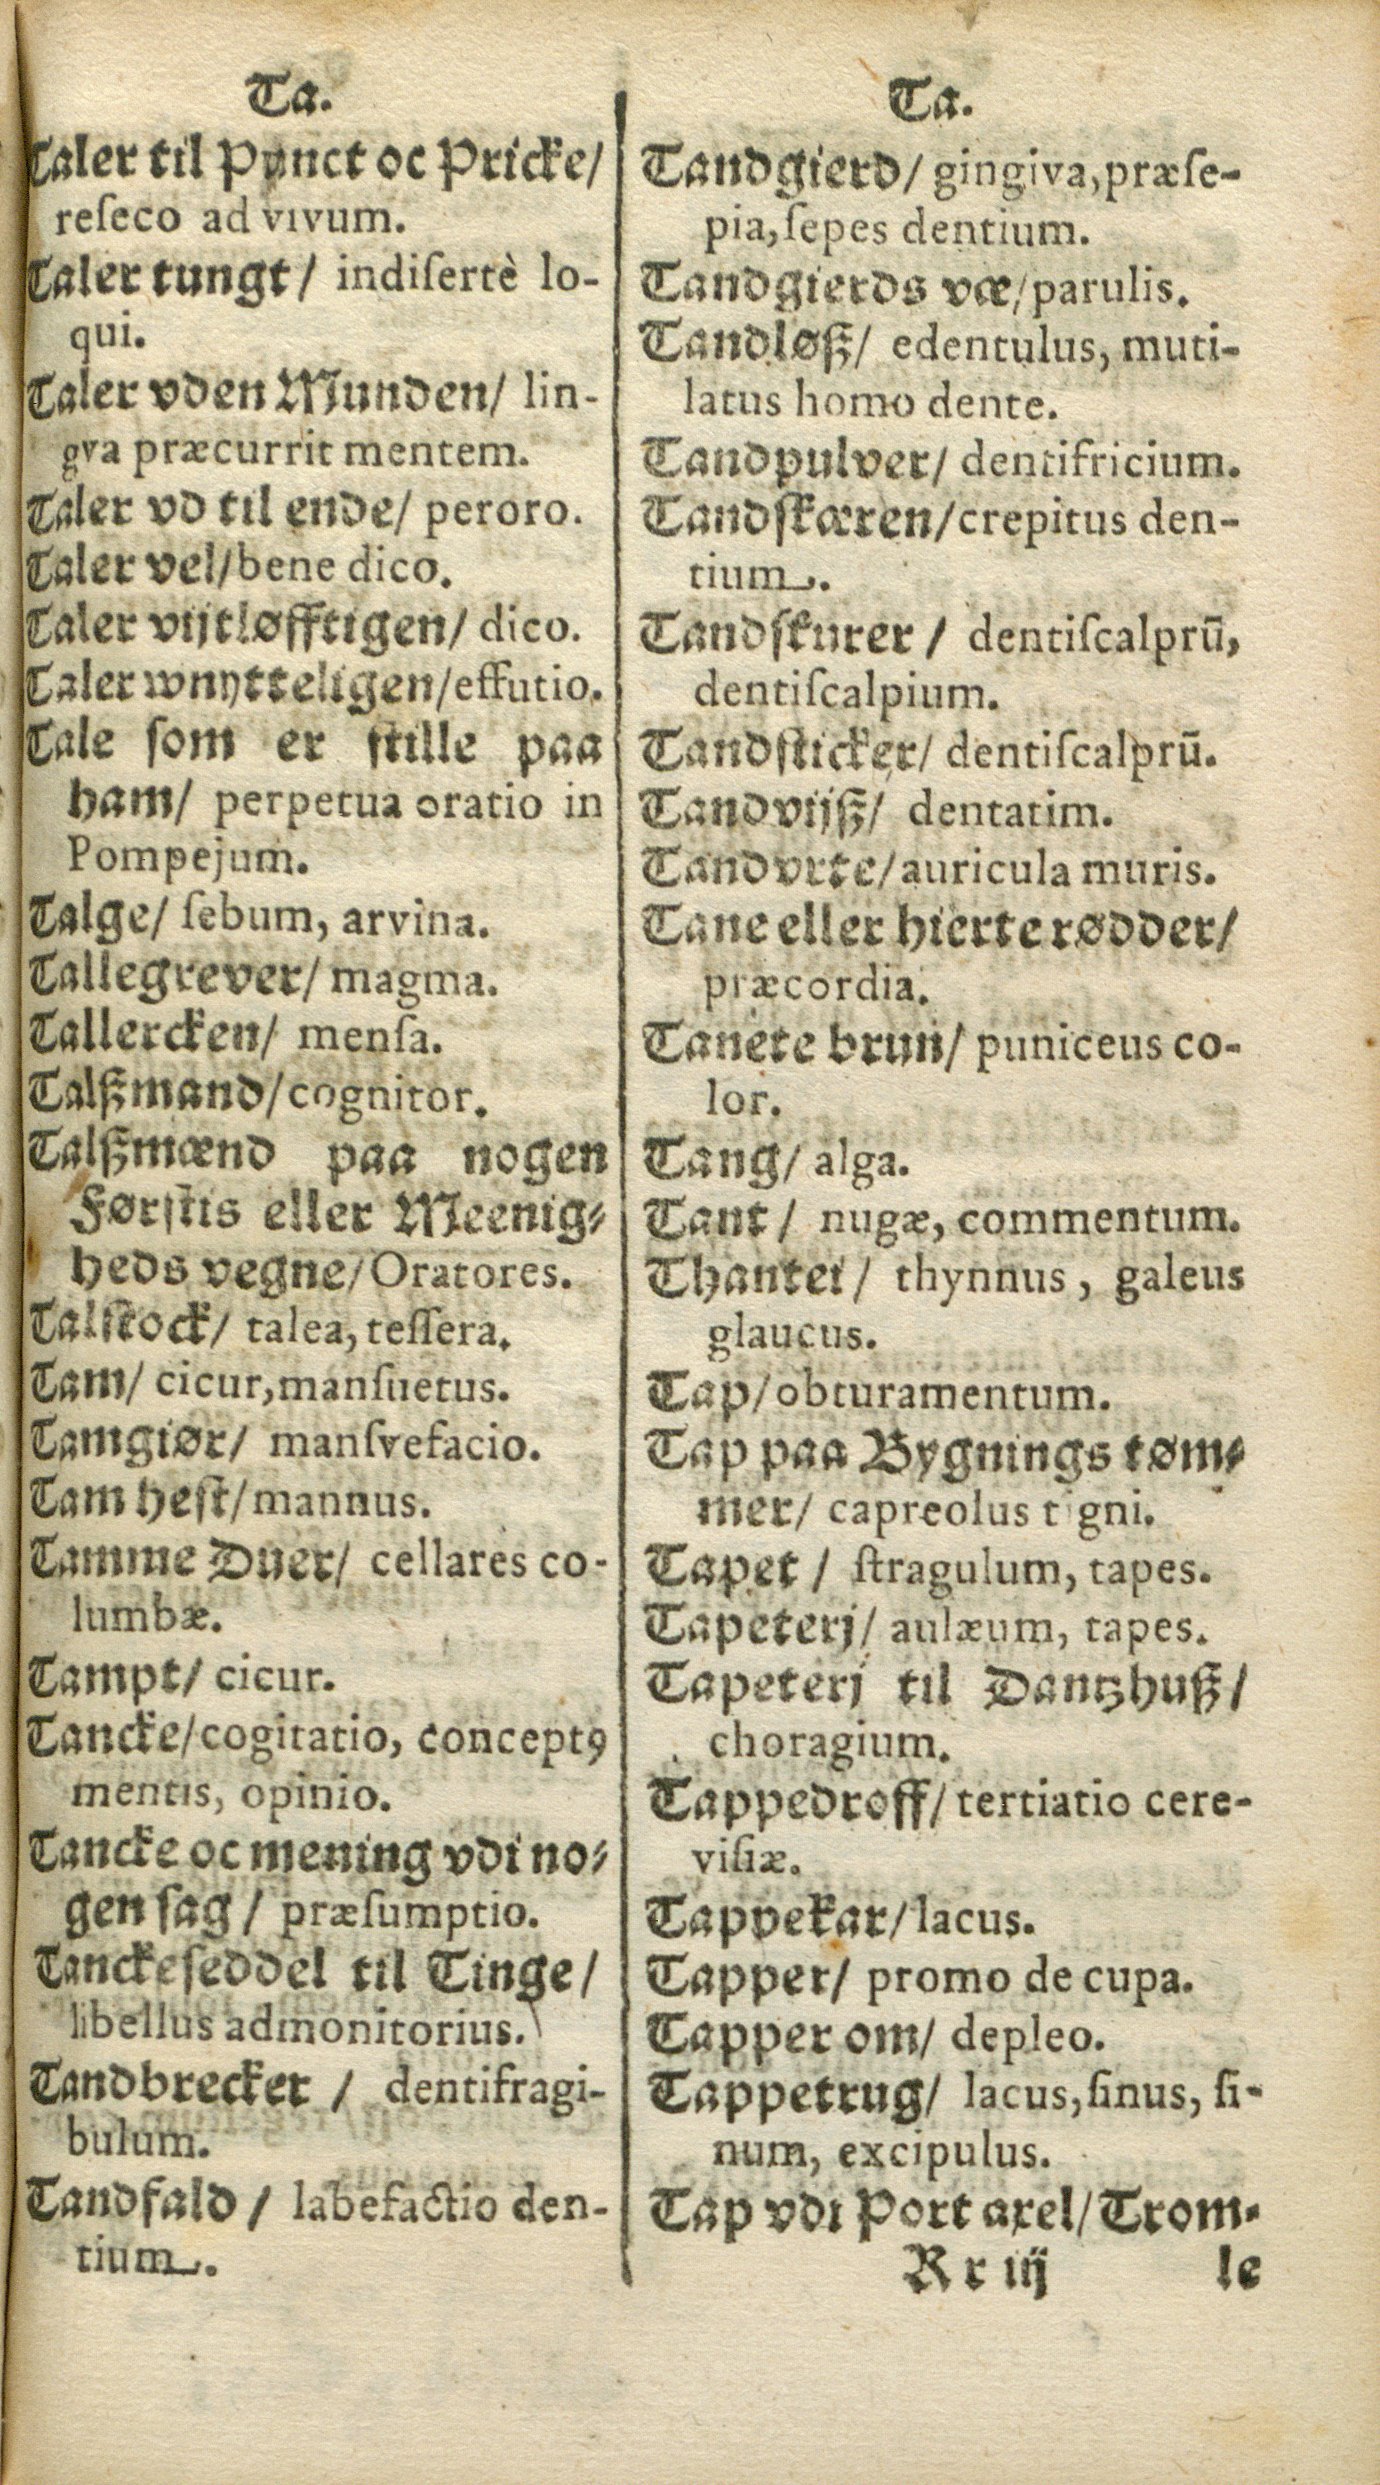 Ta.
Taler til Punct oc Pricke/
reſeco ad vivum.
Taler tungt/ indiſertè lo-
qui.
Taler vden Munden/ lin-
gva præcurrit mentem.
Taler vd til ende/ peroro.
Taler vel/bene dico.
Taler vijtløfftigen/ dico.
Taler wnytteligen/effutio.
Tale ſom er ſtille paa
ham/ perpetua oratio in
Pompejum.
Talge/ ſebum, arvina.
Tallegrever/ magma.
Tallercken/ menſa.
Talßmand/cognitor.
Talßmænd paa nogen
Førſtis eller Meenig-
heds vegne/Oratores.
Talſtock/ talea, teſſera.
Tam/ cicur,manſuetus.
Tamgiør/ manſvefacio.
Tam heſt/mannus.
Tamme Duer/ cellares co-
lumbæ.
Tampt/ cicur.
Tancke/cogitatio, conceptꝰ
mentis, opinio.
Tancke oc mening vdi no-
gen ſag/ præſumptio.
Tanckeſeddel til Tinge/
libellus admonitorius.
Tandbrecker / dentifragi-
bulum.
Tandfald / labefactio den-
tium.
Ta.
Tandgierd/ gingiva,præſe-
pia,ſepes dentium.
Tandgierds væ/parulis.
Tandløß/ edentulus, muti-
latus homo dente.
Tandpulver/ dentifricium.
Tandſkæren/crepitus den-
tium.
Tandſkurer / dentiſcalprū,
dentiſcalpium.
Tandſticker/ dentiſcalprū.
Tandvijß/ dentatim.
Tandvrte/auricula muris.
Tane eller hierterødder/
præcordia.
Tanete brun/ puniceus co-
lor.
Tang/ alga.
Tant / nugæ, commentum.
Thantei/ thynnus, galeus
glaucus.
Tap/obturamentum.
Tap paa Bygnings tøm-
mer/ capreolus tigni.
Tapet / ſtragulum, tapes.
Tapeterj/ aulæum, tapes.
Tapeterj til Dantzhuß/
choragium.
Tappedroff/ tertiatio cere-
viſiæ.
Tappekar/lacus.
Tapper/ promo de cupa.
Tapper om/ depleo.
Tappetrug/ lacus,ſinus, ſi-
num, excipulus.
Tap vdi Port axel/Trom-
Rr iij le